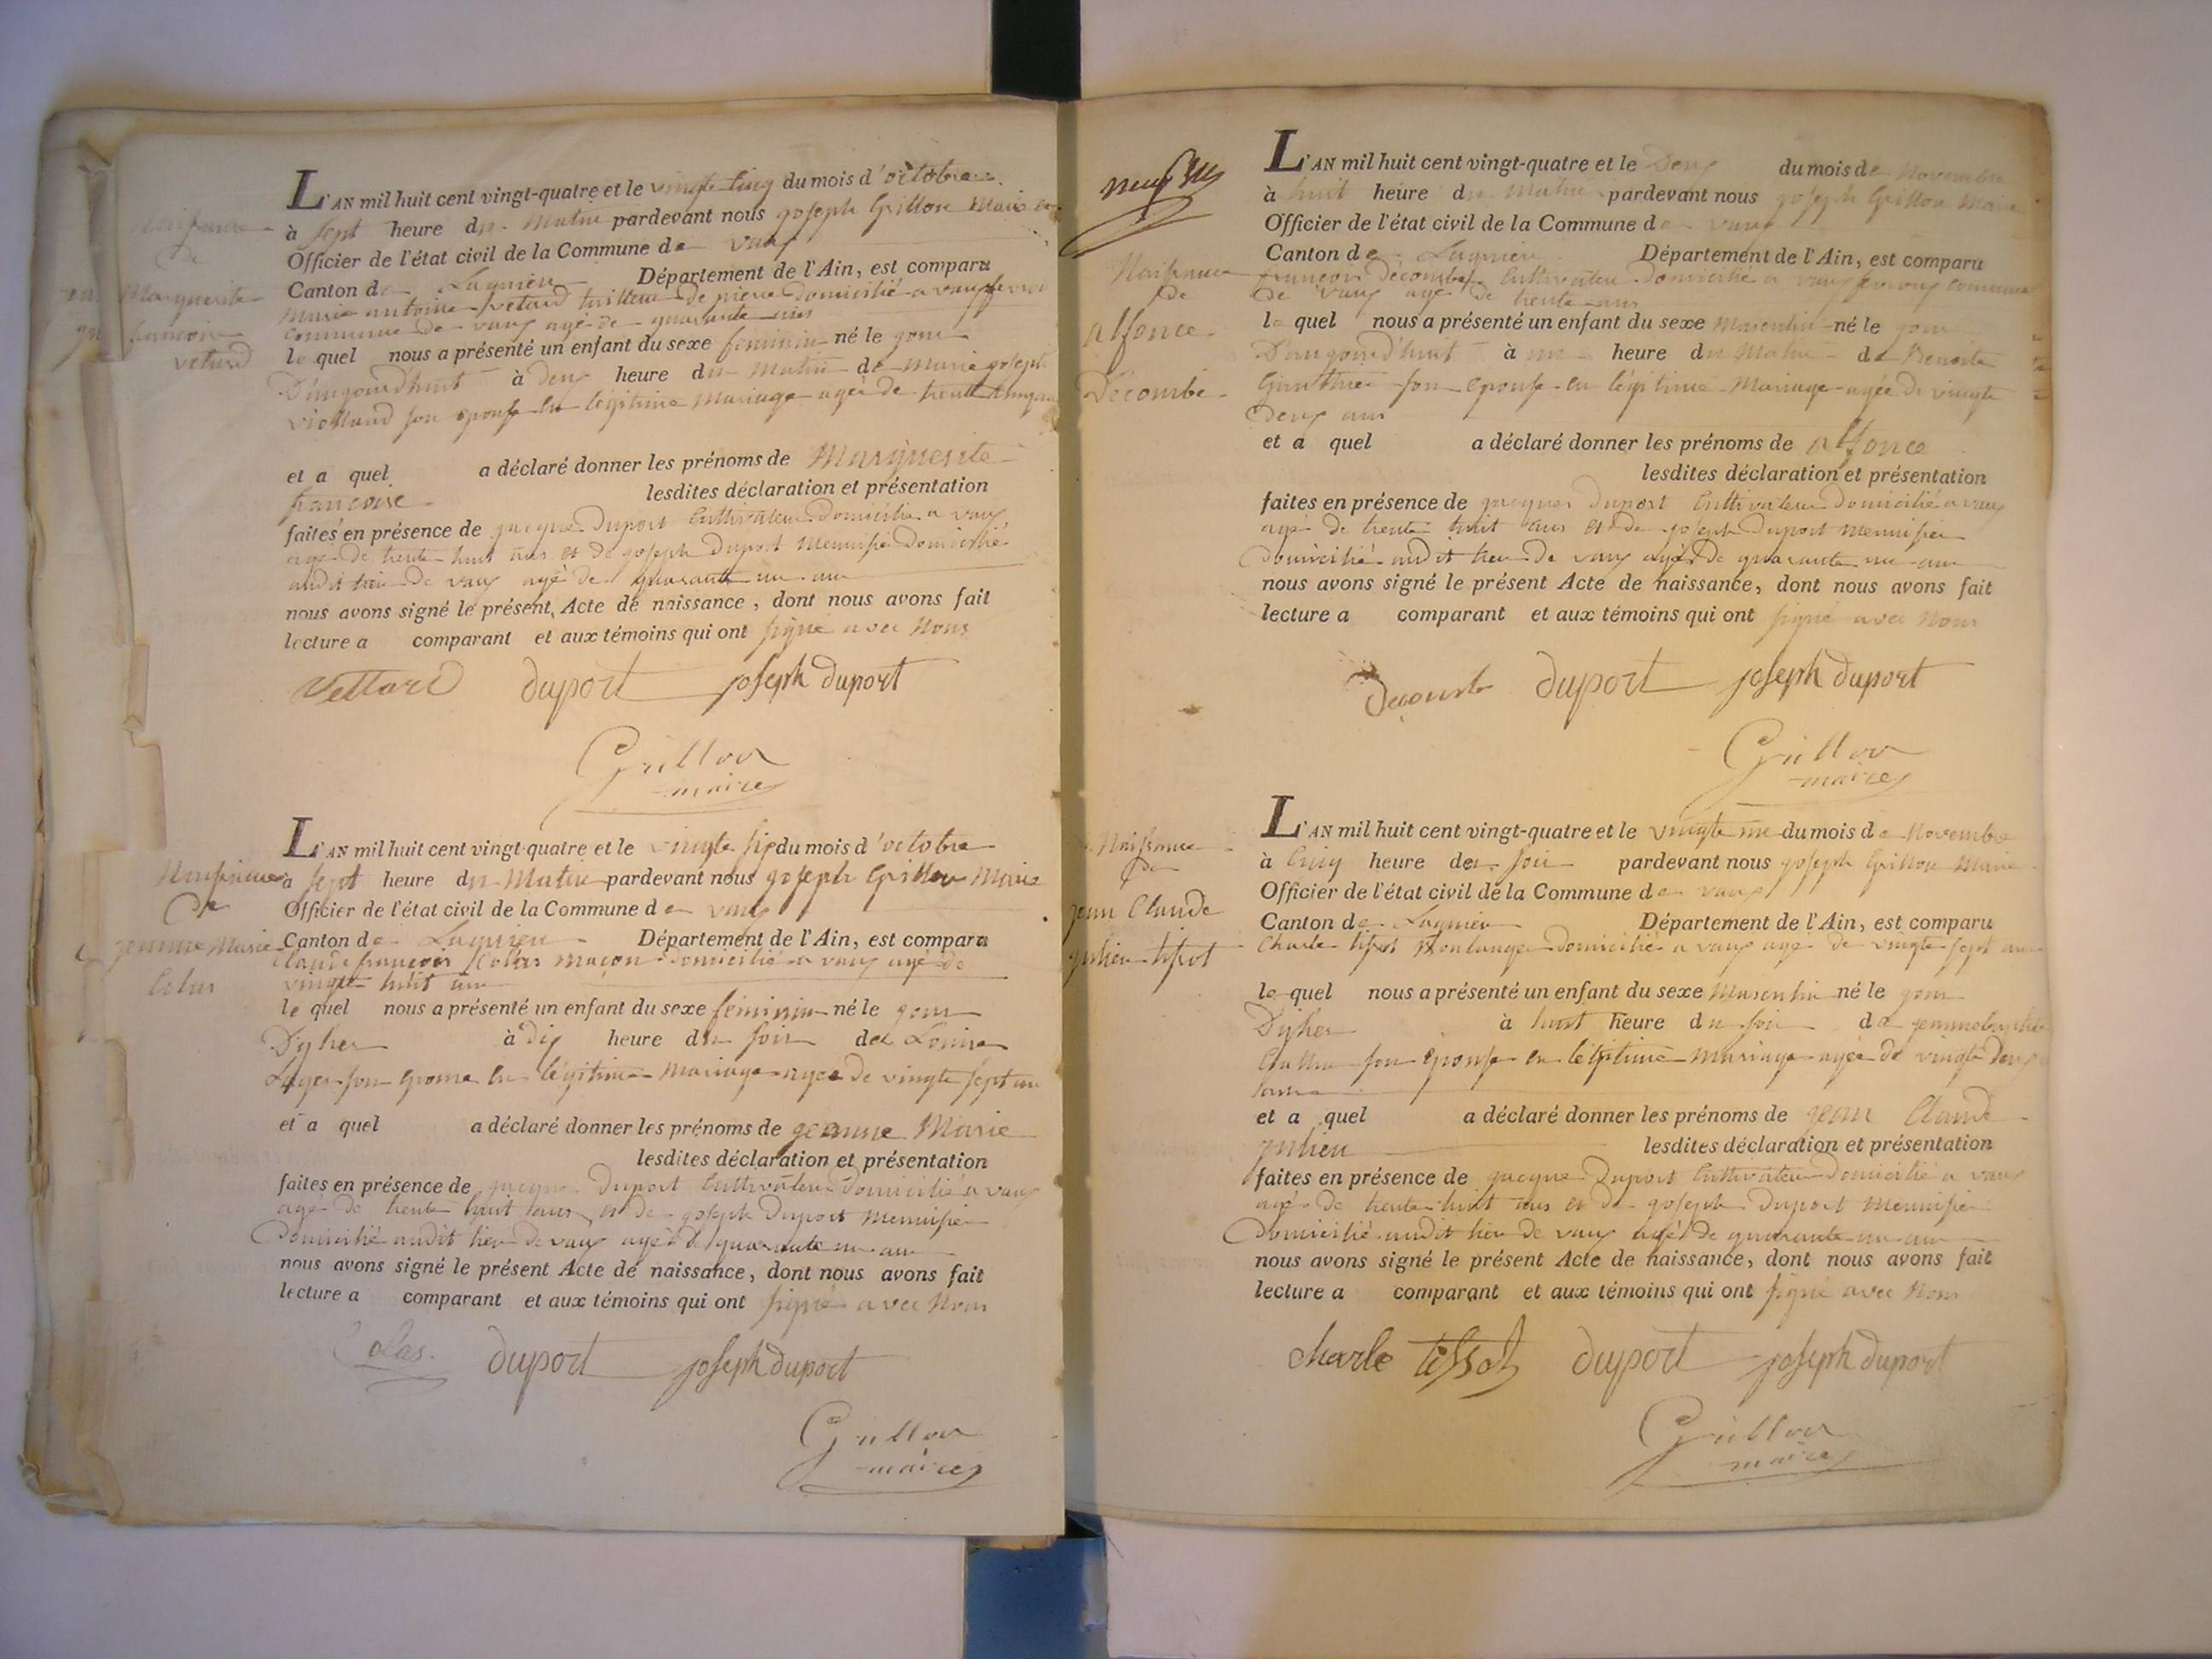 Naissance
de
Marguerite
francoise
vetard
L'AN mil huit cent vingt-quatre et le vingte cinq du mois d'octobre
à sept heure du Matin pardevant nous joseph Grillon Maire
Officier de l'état civil de la Commune de vaux
Canton de Lagnieu Département de l'Ain, est comparu
Marie antoine vetard tailleur de pierre Domicilié a vaux
commune de vaux agé de quarante ans
le quel nous a présenté un enfant du sexe feminin né le jour
D'aujourd'huit à deux heure du matin de Marie joseph
violland son epouse en legitime Mariage agée de trente cinq ans
et a quel a déclaré donner les prénoms de Marguerite
francoise lesdites déclaration et présentation
faites en présence de jacque Duport Cultivateur Domicilié a vaux
agé de trente huit ans et de joseph Duport Menuisié Domicilié
audit lieu de vaux agé de quarante un an
nous avons signé le présent Acte de naissance, dont nous avons fait
lecture a comparant et aux témoins qui ont signé avec Nous
Vettard duport joseph duport
Grillon
maire
Naissance
de
jeanne Marie
Colas
L'AN mil huit cent vingt-quatre et le vingte six du mois d'octobre
à sept heure du Matin pardevant nous joseph Grillon Maire
Officier de l'état civil de la Commune de vaux
Canton de Lagnieu Département de l'Ain, est comparu
Claude francois Colas maçon domicilié a vaux agé de
vingte huit an
le quel nous a présenté un enfant du sexe féminin né le jour
D'yher à dix heure du soir de Louise
Layer son epouse en légitime Mariage agée de vingte sept an
et a quel a déclaré donner les prénoms de jeanne Marie
lesdites déclaration et présentation
faites en présence de jacque Duport Cultivateur Domicilié a vaux
agé de trente huit ans et de joseph Duport Menuisié
Domicilié audit lieu de vaux agé de quarante un an
nous avons signé le présent Acte de naissance, dont nous avons fait
lecture a comparant et aux témoins qui ont signé avec Nous
Colas duport joseph duport
Grillon
maire
Naissance
de
alfonce
Décombe
L'AN mil huit cent vingt-quatre et le Deux du mois de Novembre
à huit heure du Matin pardevant nous joseph Grillon Maire
Officier de l'état civil de la Commune de vaux
Canton de Lagnieu Département de l'Ain, est comparu
francois Décombe Cultivateur Domicilié a vaux commune
de vaux agé de trente ans
le quel nous a présenté un enfant du sexe Masculin né le jour
D'aujourd'huit à une heure du Matin de Benoite
son epouse en légitime Mariage agée de vingte
Deux ans
et a quel a déclaré donner les prénoms de alfonce
lesdites déclaration et présentation
faites en présence de jacques Duport Cultivateur Domicilié a vaux
agé de trente huit ans et de joseph Duport Menuisier
Domicilié audit lieu de vaux agé de quarante un an
nous avons signé le présent Acte de naissance, dont nous avons fait
lecture a comparant et aux témoins qui ont signé avec Nous
Decombe duport joseph duport
Grillon
maire
Naissance
de
jean Claude
julien tissot
L'AN mil huit cent vingt-quatre et le vingte un du mois de Novembre
à Cinq heure de soir pardevant nous joseph Grillon Maire
Officier de l'état civil de la Commune de vaux
Canton de Lagnieu Département de l'Ain, est comparu
Charle tissot Boulanger Domicilié a vaux agé de vingte sept an
le quel nous a présenté un enfant du sexe Masculin né le jour
D'yher à huit heure du soir de
son épouse en légitime mariage agée de vingte deux
ans
et a quel a déclaré donner les prénoms de jean Claude
julien lesdites déclaration et présentation
faites en présence de jacque Duport Cultivateur Domicilié a vaux
agé de trente huit ans et de joseph Duport Menuisier
Domicilié audit lieu de vaux agé de quarante un an
nous avons signé le présent Acte de naissance, dont nous avons fait
lecture a comparant et aux témoins qui ont signé avec Nous
charle tissot duport joseph duport
Grillon
maire